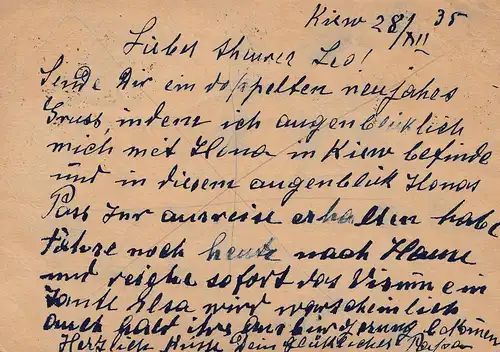 Kiew 28/XII 35
Lieber theurer Leo!
Sende Dir ein doppelten neujahrs
Gruss, indem ich augenbliklich
mich met Ilona in Kiew befinde
und in diesem augenblik Ilonas
Pass zur ausreise erhalten habe
fahre noch heute nach Hause
und reiche sofort das Visum ein
Tante Elsa wird warscheinlich
auch bald ihre
Herzlich Küsst Dein glückliches